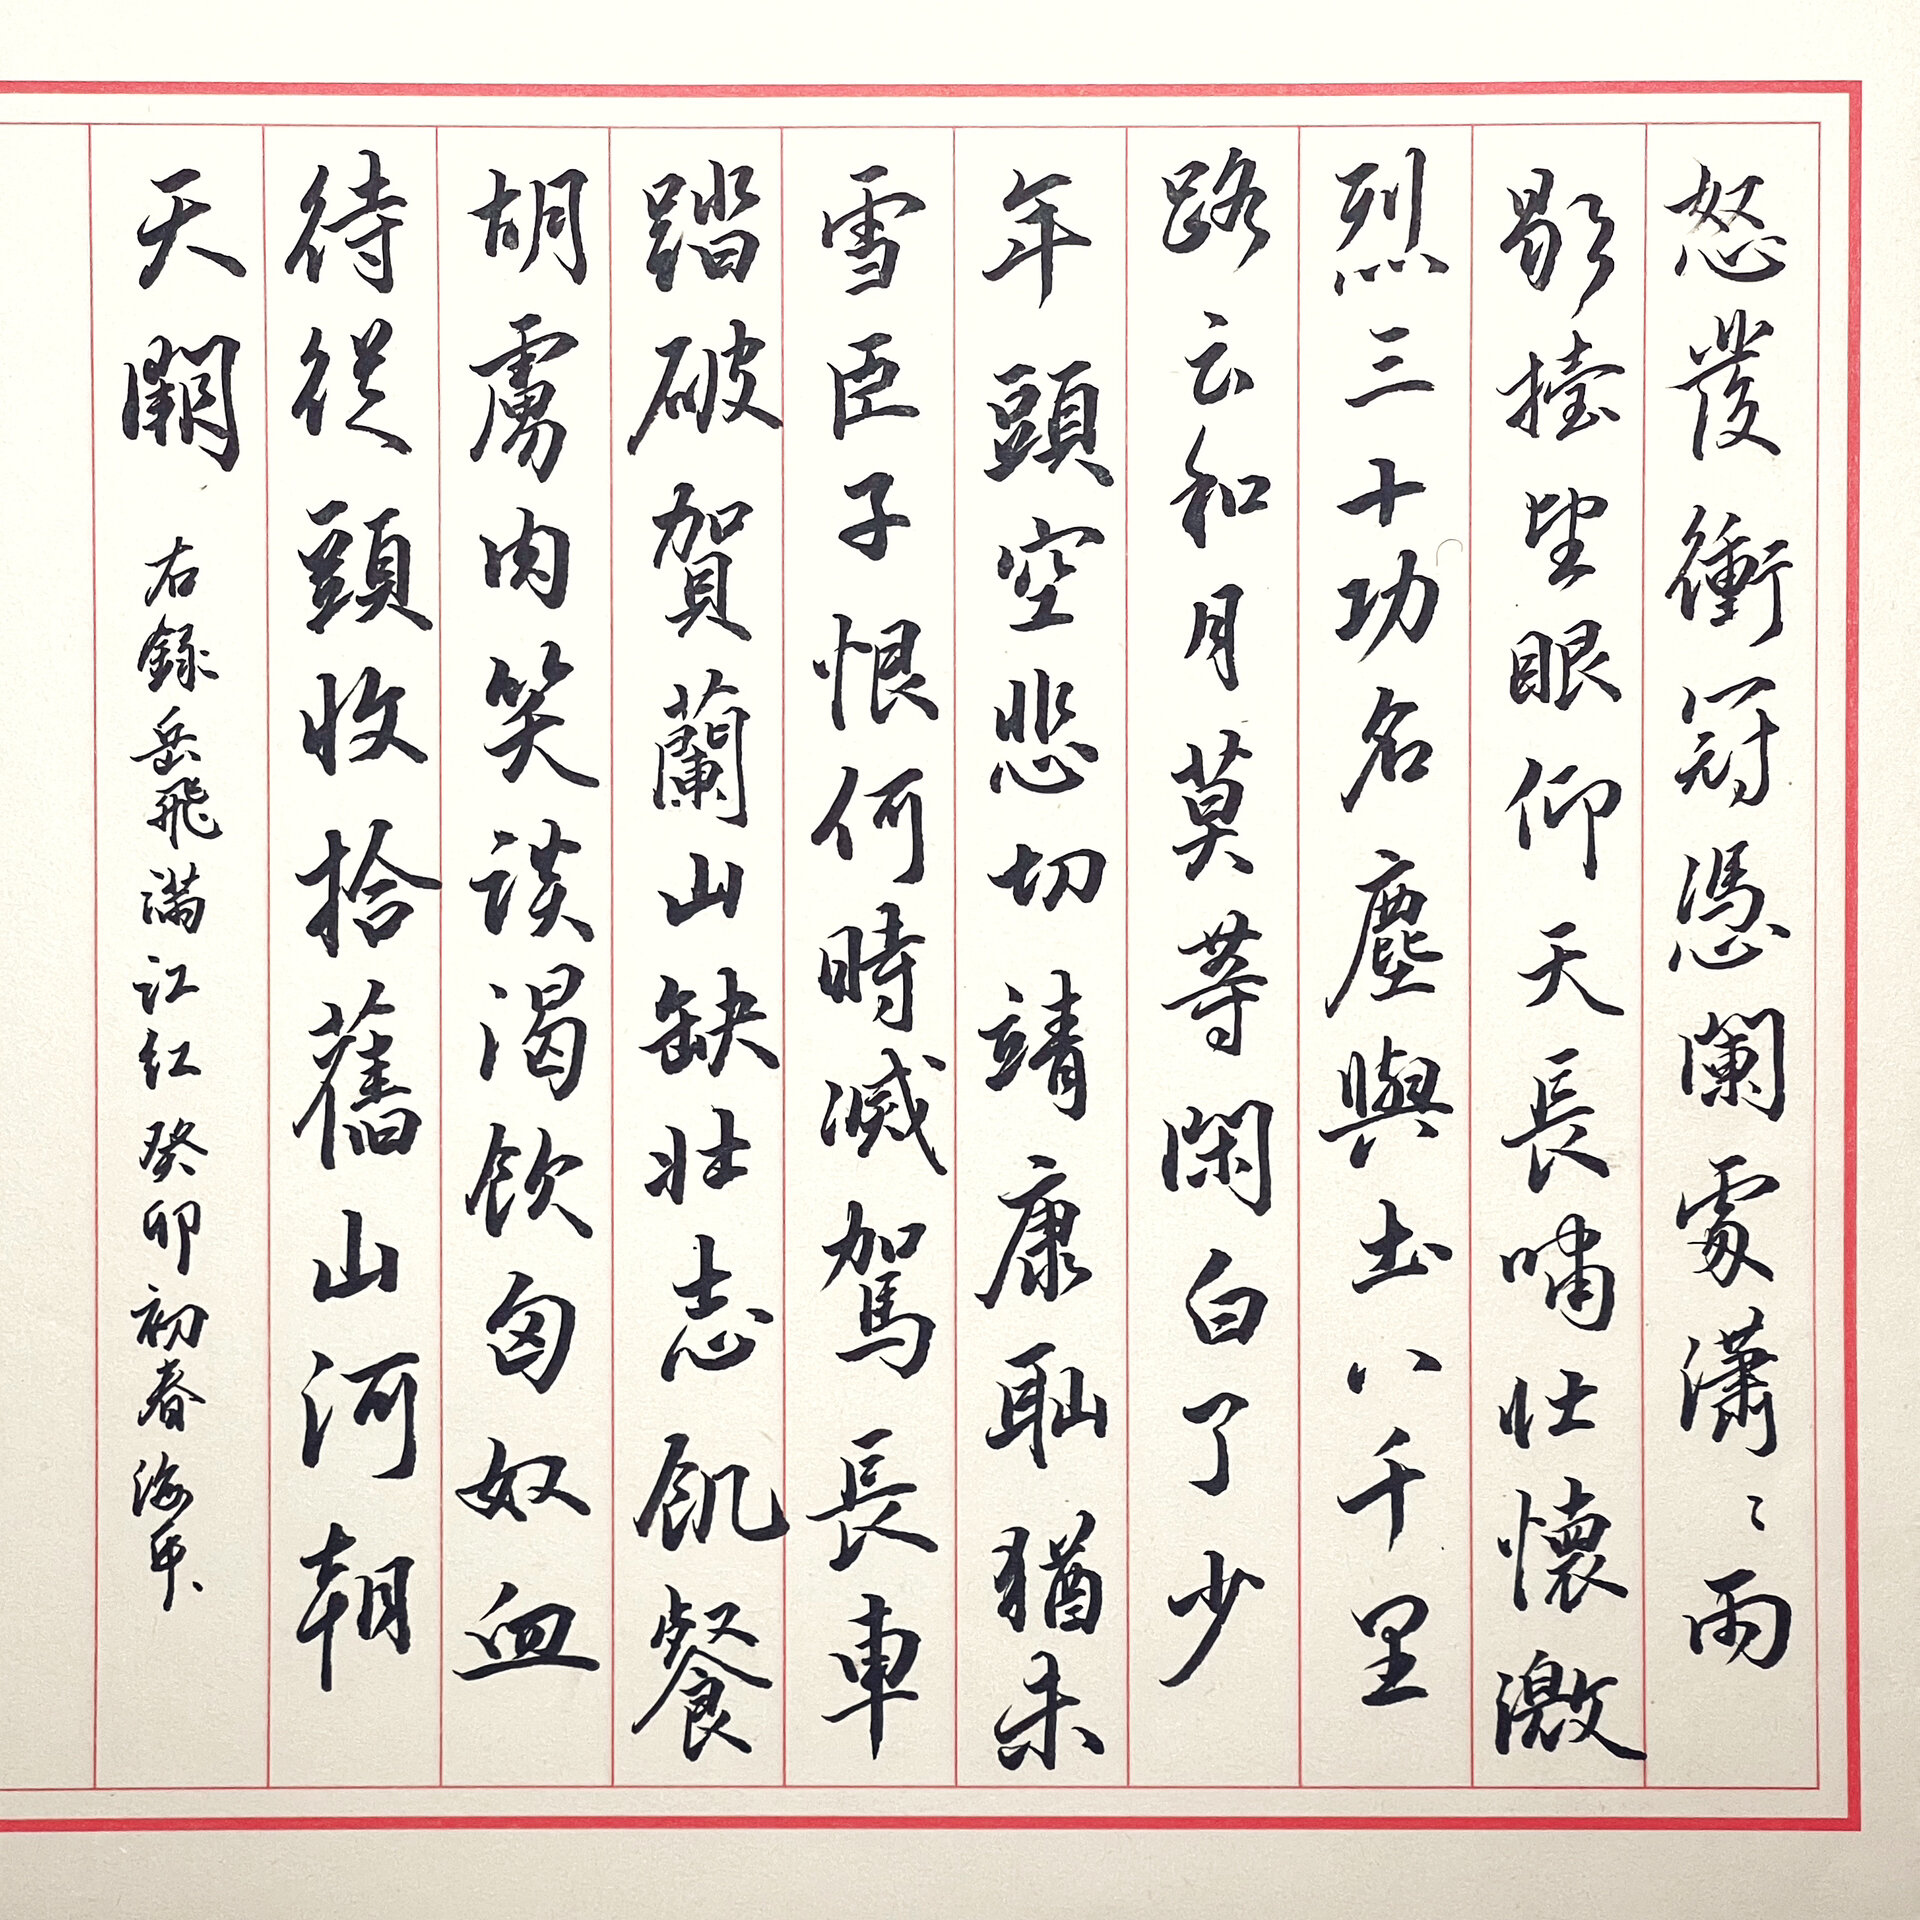 怒發衝冠憑闌處瀟〻雨
歇擡望眼仰天長嘯壯懷激
烈三十功名塵與土八千里
路云和月莫等閑白了少
年頭空悲切靖康恥猶未
雪臣子恨何時滅駕長車
踏破賀蘭山缺壯志飢餐
胡虜肉笑談渴飲匈奴血
待從頭收拾舊山河朝
天闕 右錄岳飛滿江紅癸卯初春海